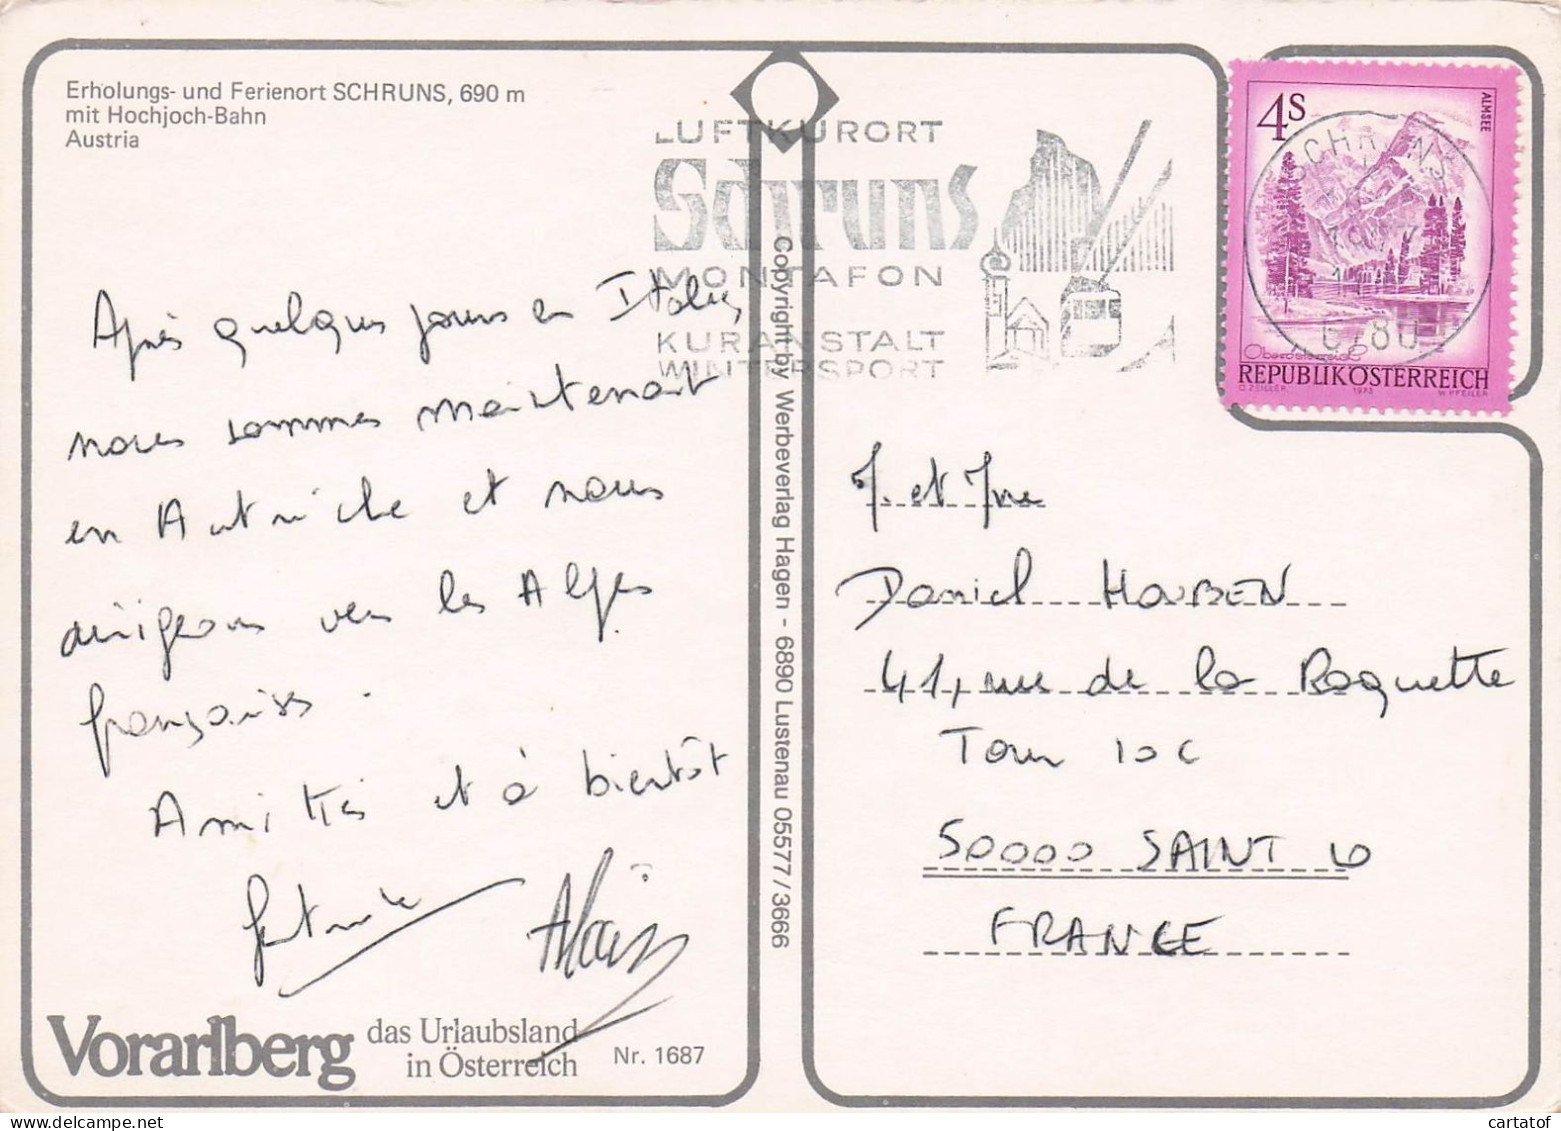 Erholungs- und Ferienort SCHRUNS, 690 m
mit Hochjoch-Bahn
Austria
LUFTKURORT
Schruns
MONTAFON
KURANSTALT
WINTERSPORT
4S
ALMSEE
SCHRUNS
6780
Oberösterreich
REPUBLIK ÖSTERREICH
O. ZEILLER 1973 W. PFEILER
Après quelques jours en Italie,
nous sommes maintenant
en Autriche et nous
dirigeons vers les Alpes
françaises.
Amitiés et à bientôt
Alain
Copyright by Werbeverlag Hagen - 6890 Lustenau 05577/3666
M. et Mme
Daniel HOUBEN
41, rue de la Roquette
Tour 10 C
50000 SAINT LO
FRANCE
Vorarlberg das Urlaubsland
in Österreich
Nr. 1687
cartatof